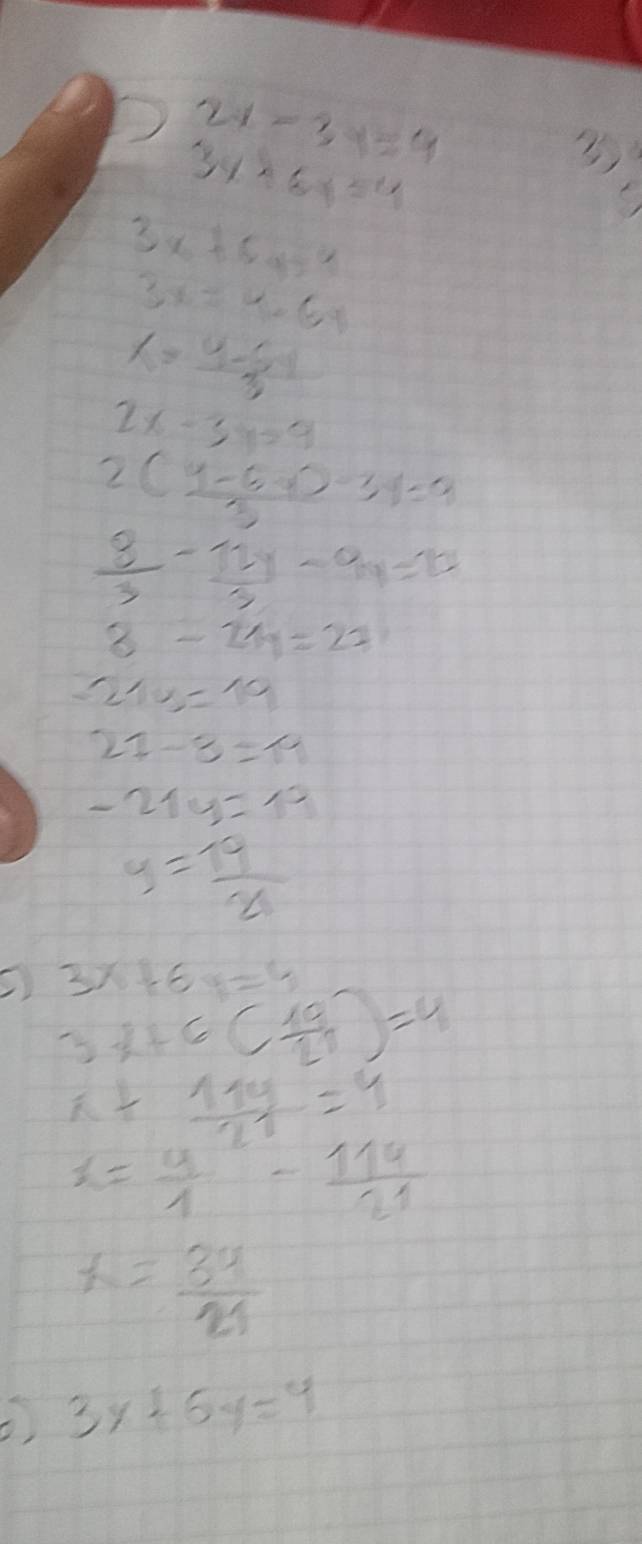 1) 2x - 3y = 9
3x + 6y = 4
3)
3x + 6y = 4
3x = 4 - 6y
x = 4-6y/3
2x - 3y = 9
2(4-6y/3) - 3y = 9
8/3 - 12y/3 - 9y = 27
8 - 21y = 27
-21y = 19
27 - 8 = 19
-21y = 19
y = 19/21
5) 3x + 6y = 4
3x + 6(19/21) = 4
x + 114/21 = 4
x = 4/1 - 114/21
x = 84/21
6) 3x + 6y = 4